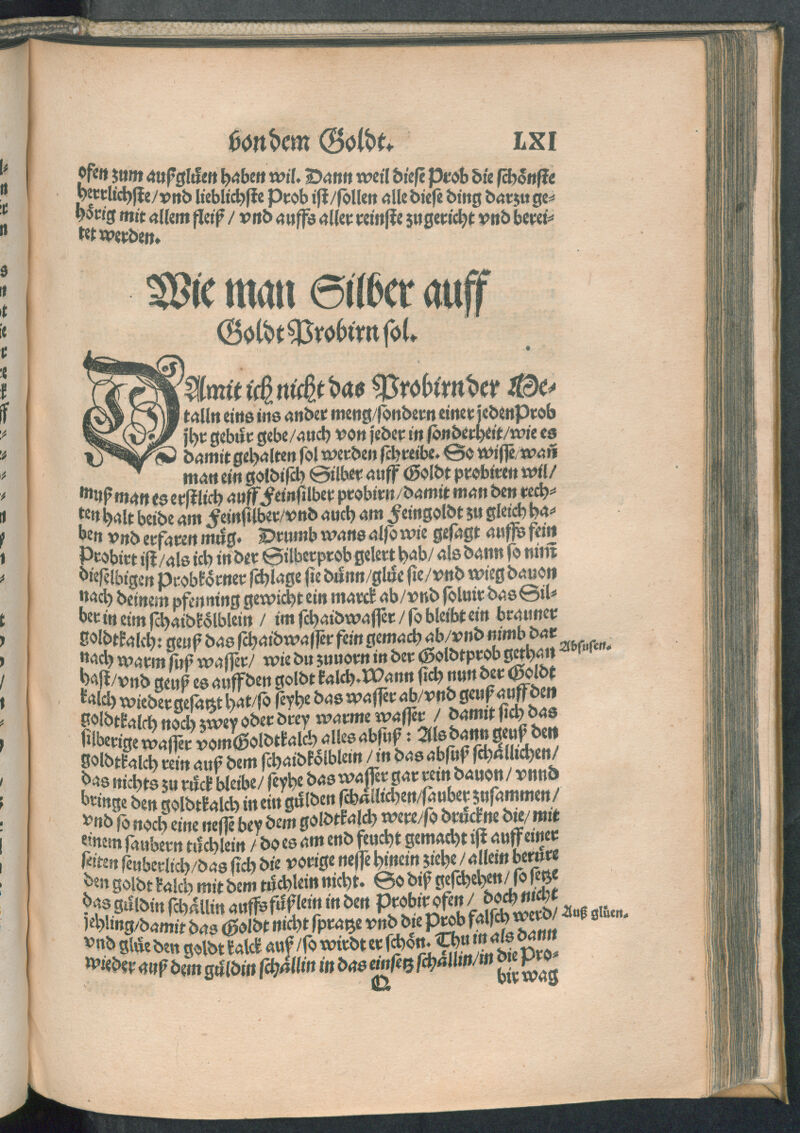 von dem Goldt. LXI
ofen zum außglüen haben wil. Dann weil diese Prob die schönste
herrlichste/vnd lieblichste Prob ist/sollen alle diese ding darzu ge-
hörig mit allem fleiß / vnd auffs aller reinste zugericht vnd berei-
tet werden.
Wie man Silber auff
Goldt Probirn sol.
DAmit ich nicht das Probirn der Me-
talln eins ins ander meng/sondern einer jeden Prob
jhr gebür gebe/auch von jeder in sonderheit/wie es
damit gehalten sol werden schreibe. So wisse/wañ
man ein goldisch Silber auff Goldt probiren wil/
muß man es erstlich auff Feinsilber probirn/damit man den rech-
ten halt beide am Feinsilber/vnd auch am Feingoldt zu gleich ha-
ben vnd erfaren müg. Drumb wans also wie gesagt auffs fein
Probirt ist/als ich in der Silberprob gelert hab/ als dann so nim̃
dieselbigen Probkörner schlage sie dünn/glüe sie/vnd wieg dauon
nach deinem pfenning gewicht ein marck ab/vnd soluir das Sil-
ber in eim schaidkölblein / im schaidwasser / so bleibt ein brauner
goldtkalch: geuß das schaidwasser fein gemach ab/vnd nimb dar
nach warm süß wasser/ wie du zuuorn in der Goldtprob gethan
Absüsen.
hast/vnd geuß es auff den goldt kalch. Wann sich nun der Goldt
kalch wieder gesatzt hat/so seyhe das wasser ab/vnd geuß auff den
goldtkalch noch zwey oder drey warme wasser / damit sich das
silberige wasser vom Goldtkalch alles absüß: Als dann geuß den
goldtkalch rein auß dem schaidkölblein / in das absüß schällichen/
das nichts zu rück bleibe/ seyhe das wasser gar rein dauon / vnnd
bringe den goldtkalch in ein gülden schällichen/sauber zusammen/
vnd so noch eine nesse bey dem goldtkalch were/so drückne die/ mit
einem saubern tüchlein / do es am end feucht gemacht ist auff einer
seiten seuberlich/das sich die vorige nesse hinein ziehe / allein berüre
den goldt kalch mit dem tüchlein nicht. So diß geschehen/ so setze
das güldin schällin auffs füßlein in den Probir ofen / doch nicht
jehling/damit das Goldt nicht spratze vnd die Prob falsch werd/
Auß glüen.
vnd glüe den goldt kalck auß /so wirdt er schön. Thu in als dann
wieder auß dem güldin schällin in das einsetz schällin/in die Pro-
Q bir wag